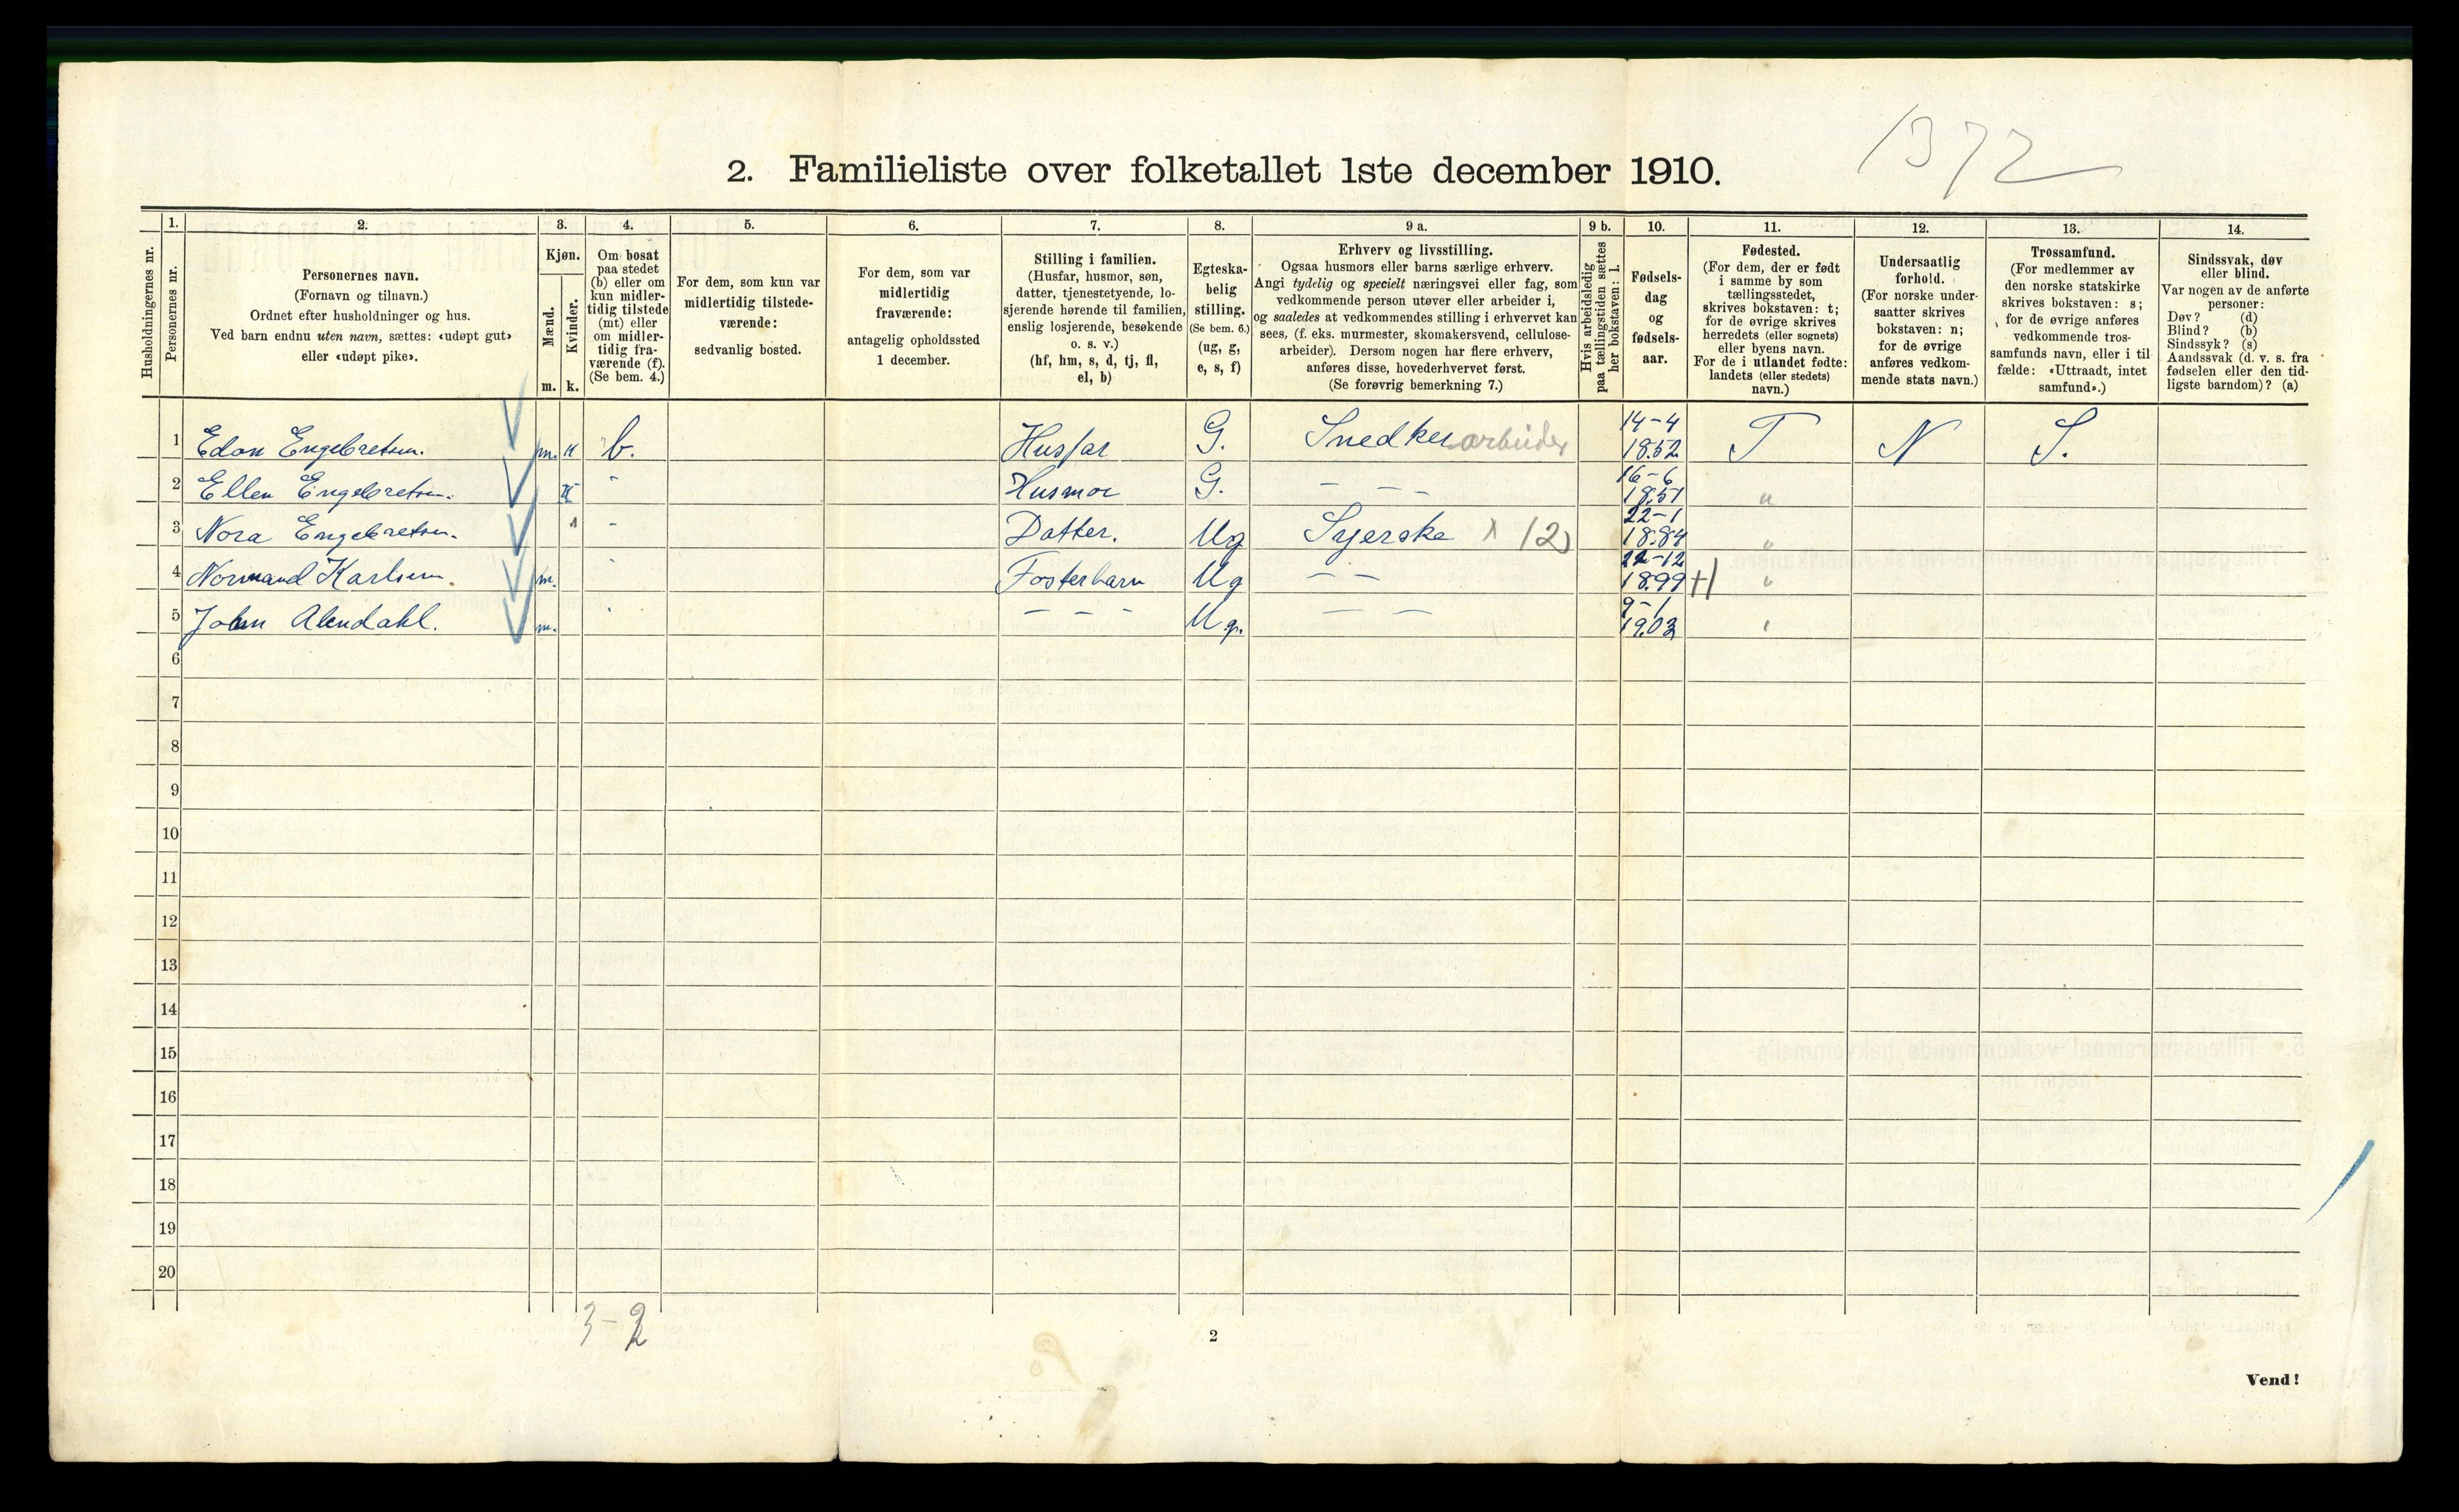 1372
2. Familieliste over folketallet 1ste december 1910.
1. 2. 3. 4. 5. 6. 7. 8. 9 a. 9 b. 10. 11. 12. 13. 14.
Husholdningernes nr.
Personernes nr.
Personernes navn.
(Fornavn og tilnavn.)
Ordnet efter husholdninger og hus.
Ved barn endnu uten navn, sættes: «udøpt gut»
eller «udøpt pike».
Kjøn.
Mænd.
Kvinder.
m. k.
Om bosat
paa stedet
(b) eller om
kun midler-
tidig tilstede
(mt) eller
om midler-
tidig fra-
værende (f).
(Se bem. 4.)
For dem, som kun var
midlertidig tilstede-
værende:
sedvanlig bosted.
For dem, som var
midlertidig
fraværende:
antagelig opholdssted
1 december.
Stilling i familien.
(Husfar, husmor, søn,
datter, tjenestetyende, lo-
sjerende hørende til familien,
enslig losjerende, besøkende
o. s. v.)
(hf, hm, s, d, tj, fl,
el, b)
Egteska-
belig
stilling.
(Se bem. 6.)
(ug, g,
e, s, f)
Erhverv og livsstilling.
Ogsaa husmors eller barns særlige erhverv.
Angi tydelig og specielt næringsvei eller fag, som
vedkommende person utøver eller arbeider i,
og saaledes at vedkommendes stilling i erhvervet kan
sees, (f. eks. murmester, skomakersvend, cellulose-
arbeider). Dersom nogen har flere erhverv,
anføres disse, hovederhvervet først.
(Se forøvrig bemerkning 7.)
Hvis arbeidsledig
paa tællingstiden sættes
her bokstaven: l.
Fødsels-
dag
og
fødsels-
aar.
Fødested.
(For dem, der er født
i samme by som
tællingsstedet,
skrives bokstaven: t;
for de øvrige skrives
herredets (eller sognets)
eller byens navn.
For de i utlandet fødte:
landets (eller stedets)
navn.)
Undersaatlig
forhold.
(For norske under-
saatter skrives
bokstaven: n;
for de øvrige
anføres vedkom-
mende stats navn.)
Trossamfund.
(For medlemmer av
den norske statskirke
skrives bokstaven: s;
for de øvrige anføres
vedkommende tros-
samfunds navn, eller i til-
fælde: «Uttraadt, intet
samfund».)
Sindssvak, døv
eller blind.
Var nogen av de anførte
personer:
Døv? (d)
Blind? (b)
Sindssyk? (s)
Aandssvak (d. v. s. fra
fødselen eller den tid-
ligste barndom)? (a)
1 Edon Engebretsen. m. b. Husfar G. Snedker arbeider 14-4 1852 T N S.
2 Ellen Engebretsen. K " Husmor G. — — — 16-6 1851 "
3 Nora Engebretsen. - Datter. Ug Syerske x 12) 22-1 1884 "
4 Normand Karlsen. m. " Fosterbarn Ug — — 22-12 1899 "
5 John m. " — — — Ug. — — 9-1 1903 "
6
7
8
9
10
11
12
13
14
15
16
17
18
19
20
3-2
2
Vend!